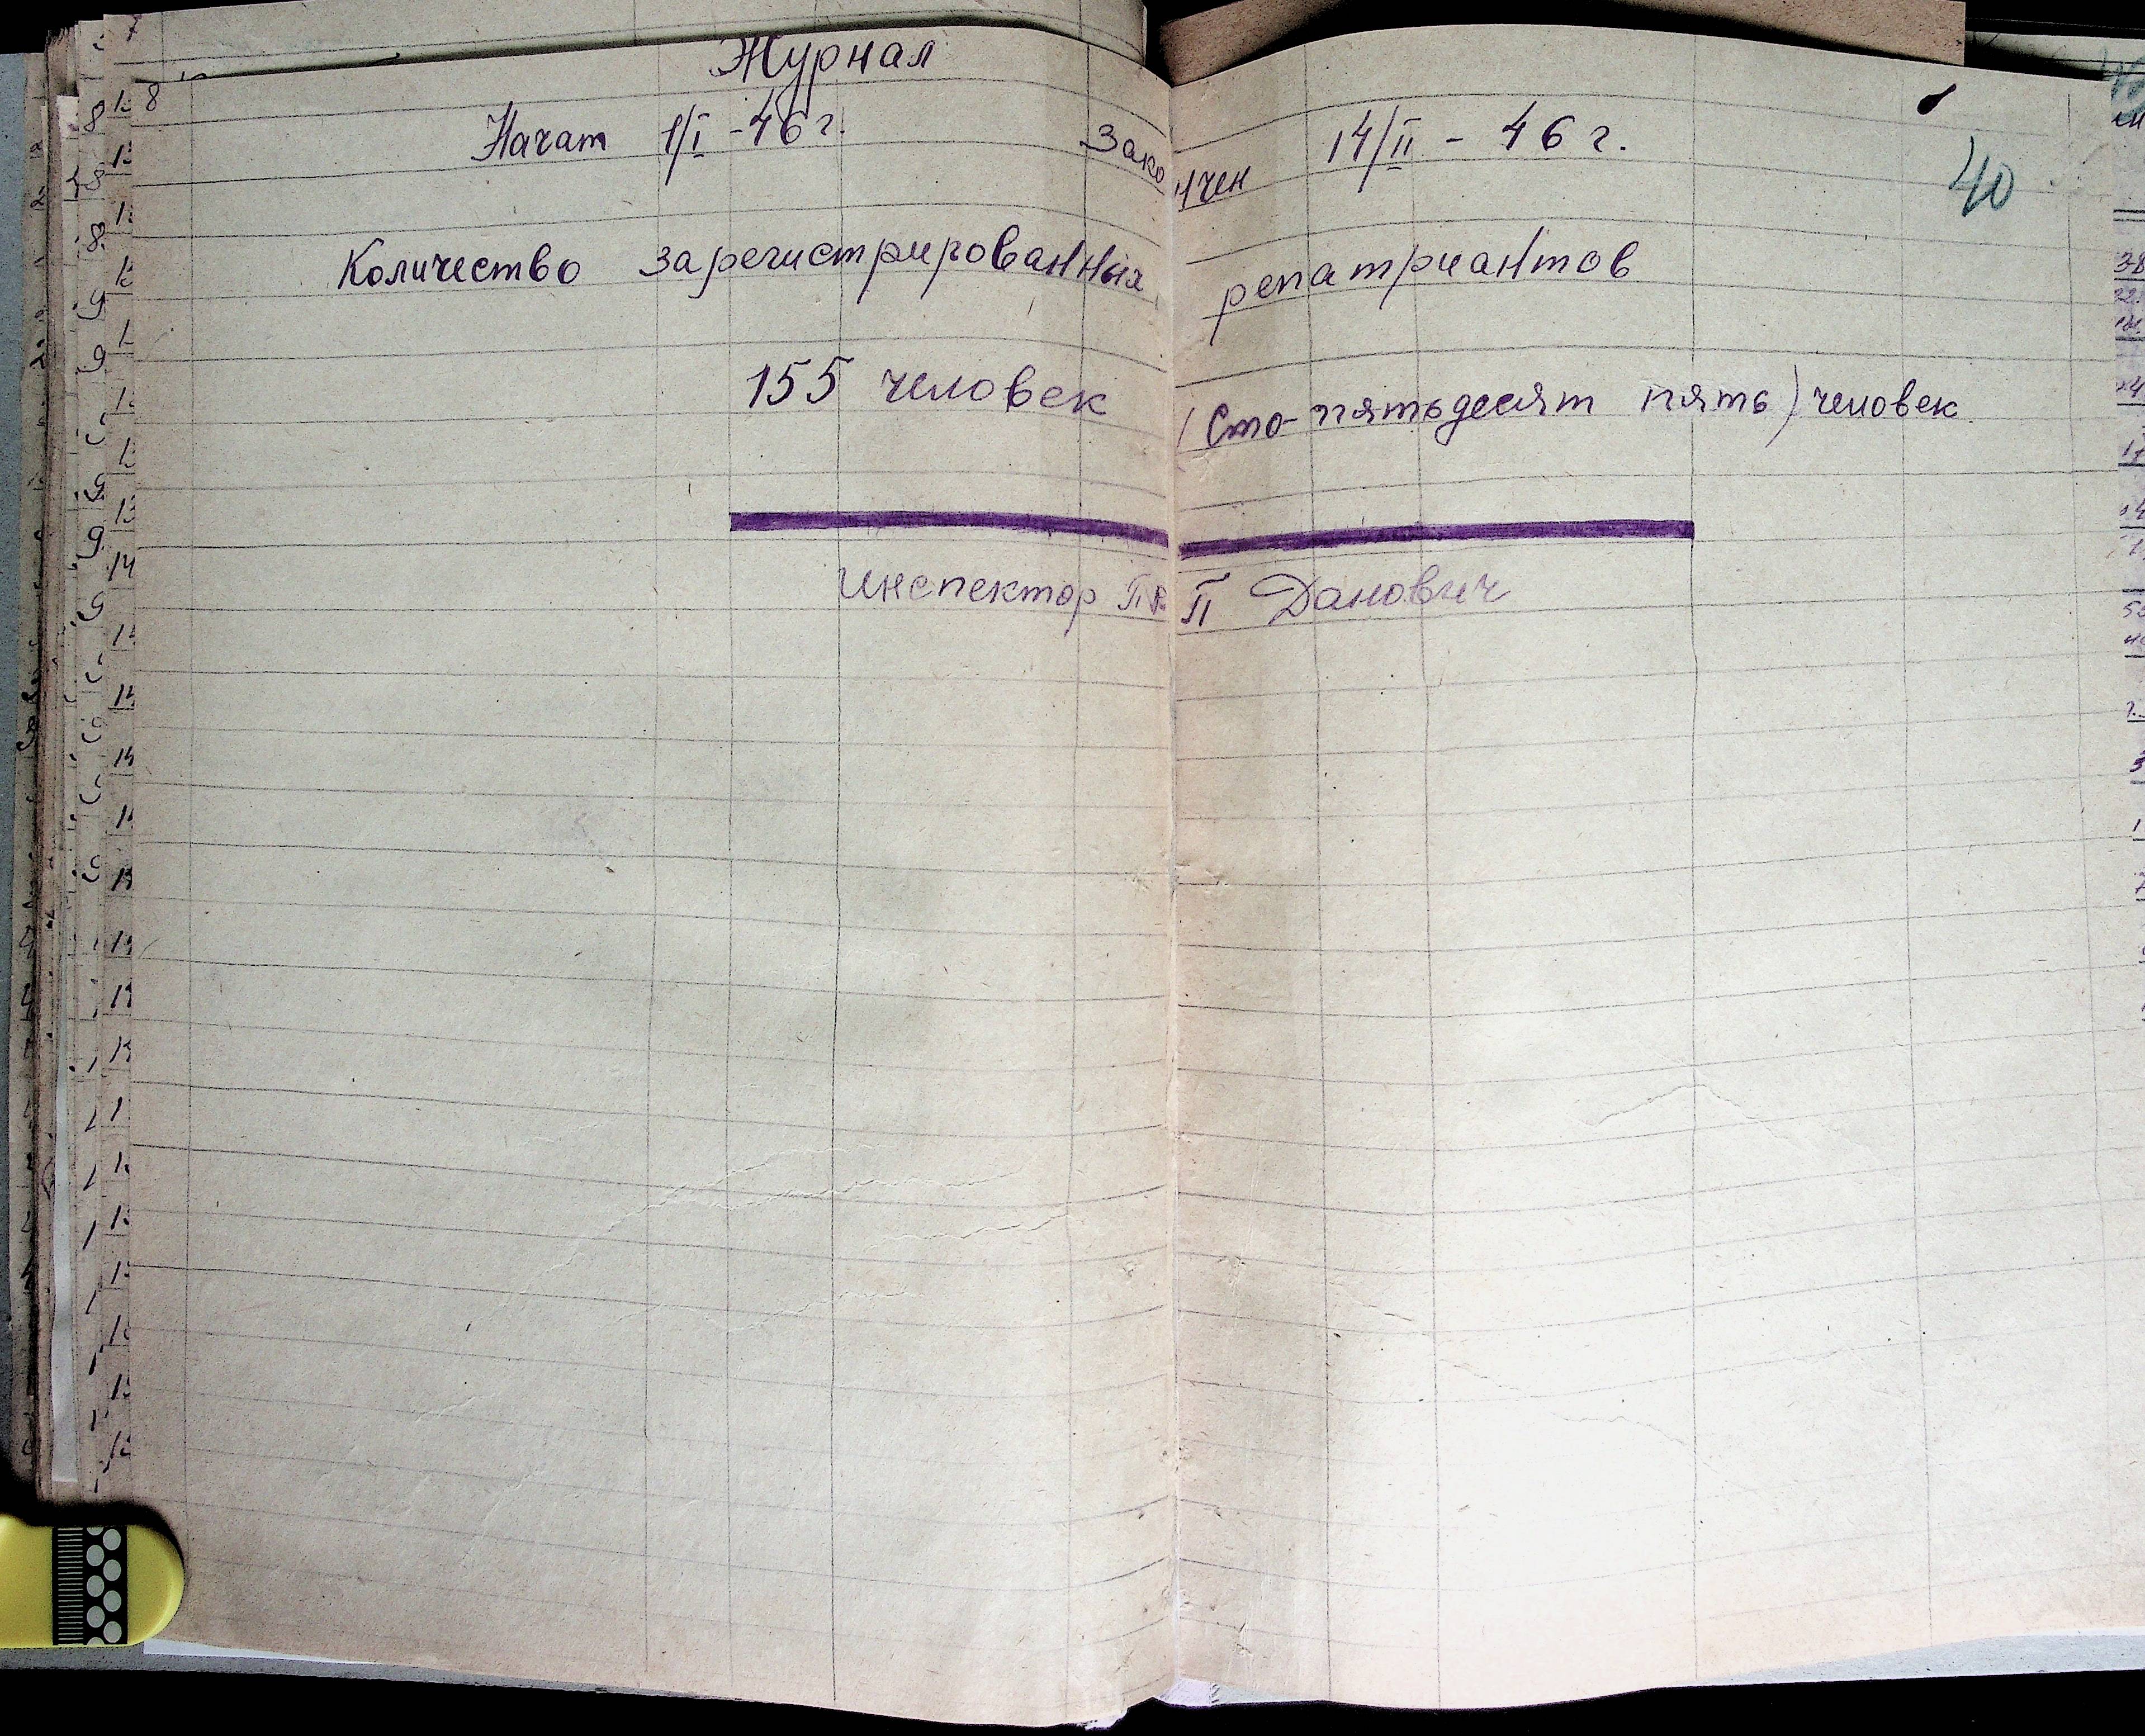 Журнал
8
Начат 1/I - 46 г. Закончен 14/II - 46 г.
40
Количество зарегистрированных репатриантов
155 человек (Сто-пятьдесят пять) человек
Инспектор Данович